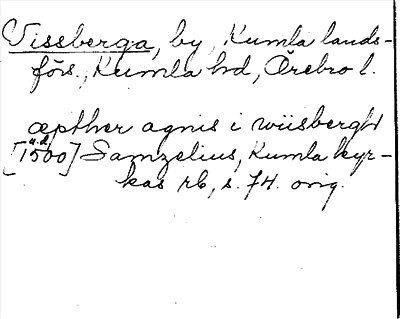 Vissberga, by, Kumla lands-
förs., Kumla hd, Örebro l.
æpther agnis i wiisbergh
u.d.
[1500] Samzelius, Kumla kyr-
kas rb, s. 74. orig.